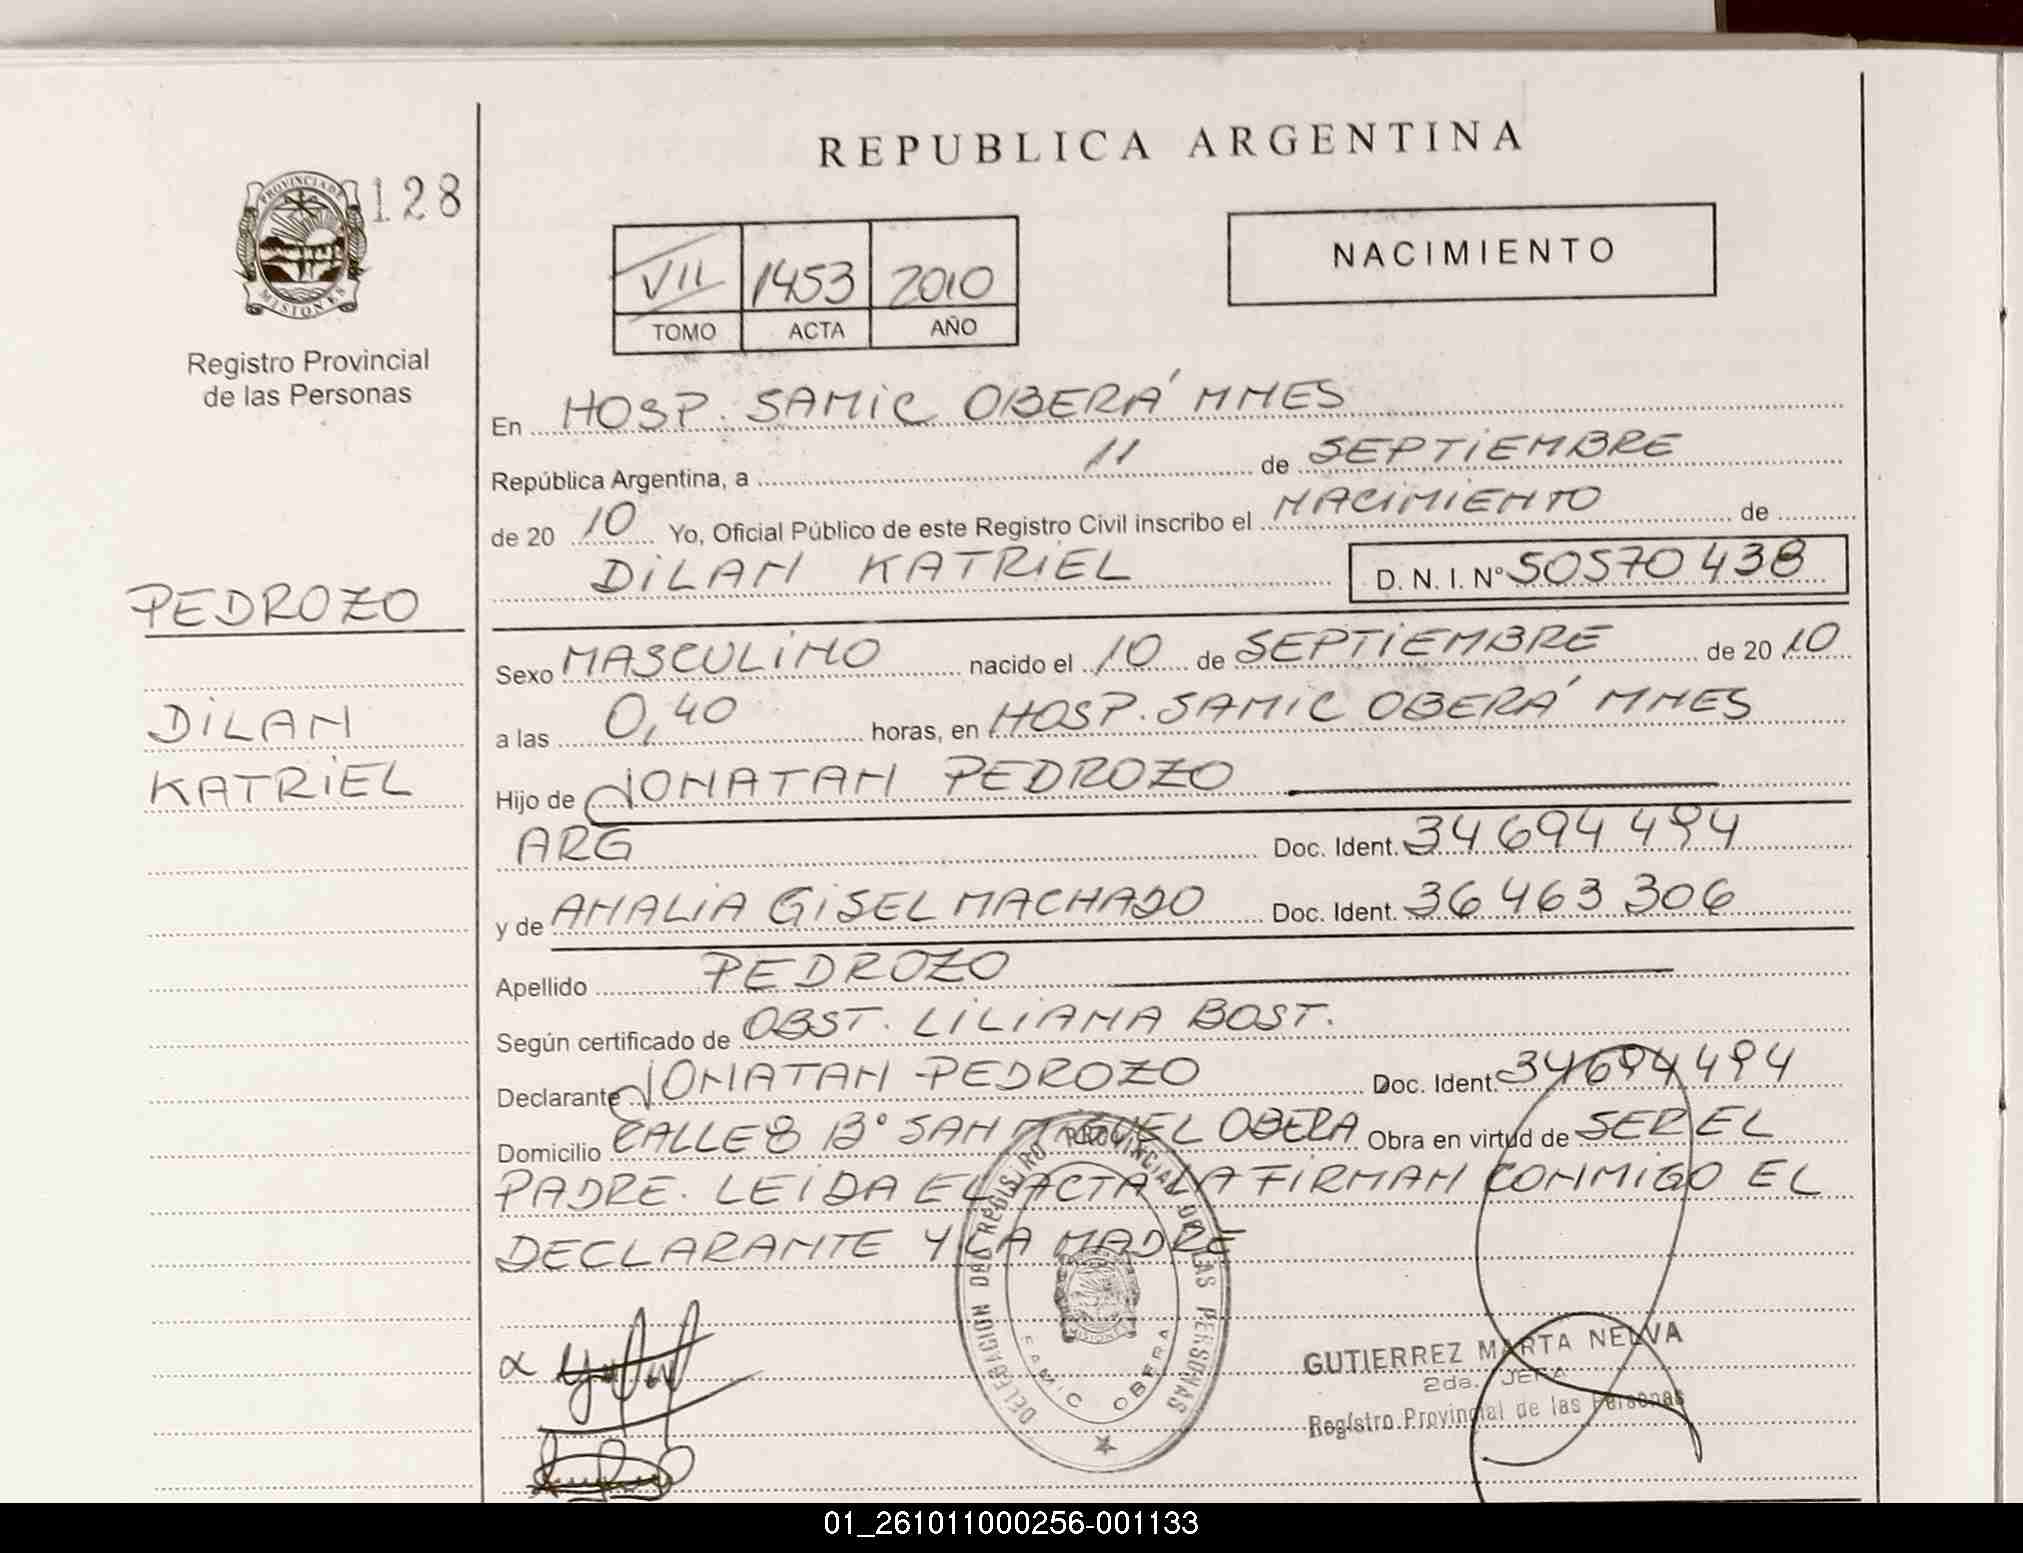 REPUBLICA ARGENTINA
PROVINCIA DE
MISIONES
128
Registro Provincial
de las Personas
VII 1453 2010
TOMO ACTA AÑO
NACIMIENTO
En HOSP. SAMIC OBERÁ MNES
República Argentina, a 11 de SEPTIEMBRE
de 20 10 Yo, Oficial Público de este Registro Civil inscribo el NACIMIENTO de
DILAN KATRIEL D. N. I. Nº 50570438
PEDROZO
DILAN
KATRIEL
Sexo MASCULINO nacido el 10 de SEPTIEMBRE de 20 10
a las 0,40 horas, en HOSP. SAMIC OBERÁ MNES
Hijo de JONATAN PEDROZO
ARG Doc. Ident. 34694494
y de ANALIA GISEL MACHADO Doc. Ident. 36463306
Apellido PEDROZO
Según certificado de OBST. LILIANA BOST.
Declarante JONATAN PEDROZO Doc. Ident. 34694494
Domicilio CALLE 8 Bº SAN MIGUEL OBERA Obra en virtud de SER EL
PADRE. LEIDA EL ACTA LA FIRMAN CONMIGO EL
DECLARANTE Y LA MADRE
DELEGACION DEL REGISTRO PROVINCIAL DE LAS PERSONAS
SAMIC OBERA
MISIONES
GUTIERREZ MARTA NELVA
2da. JEFA
Registro Provincial de las Personas
01_261011000256-001133